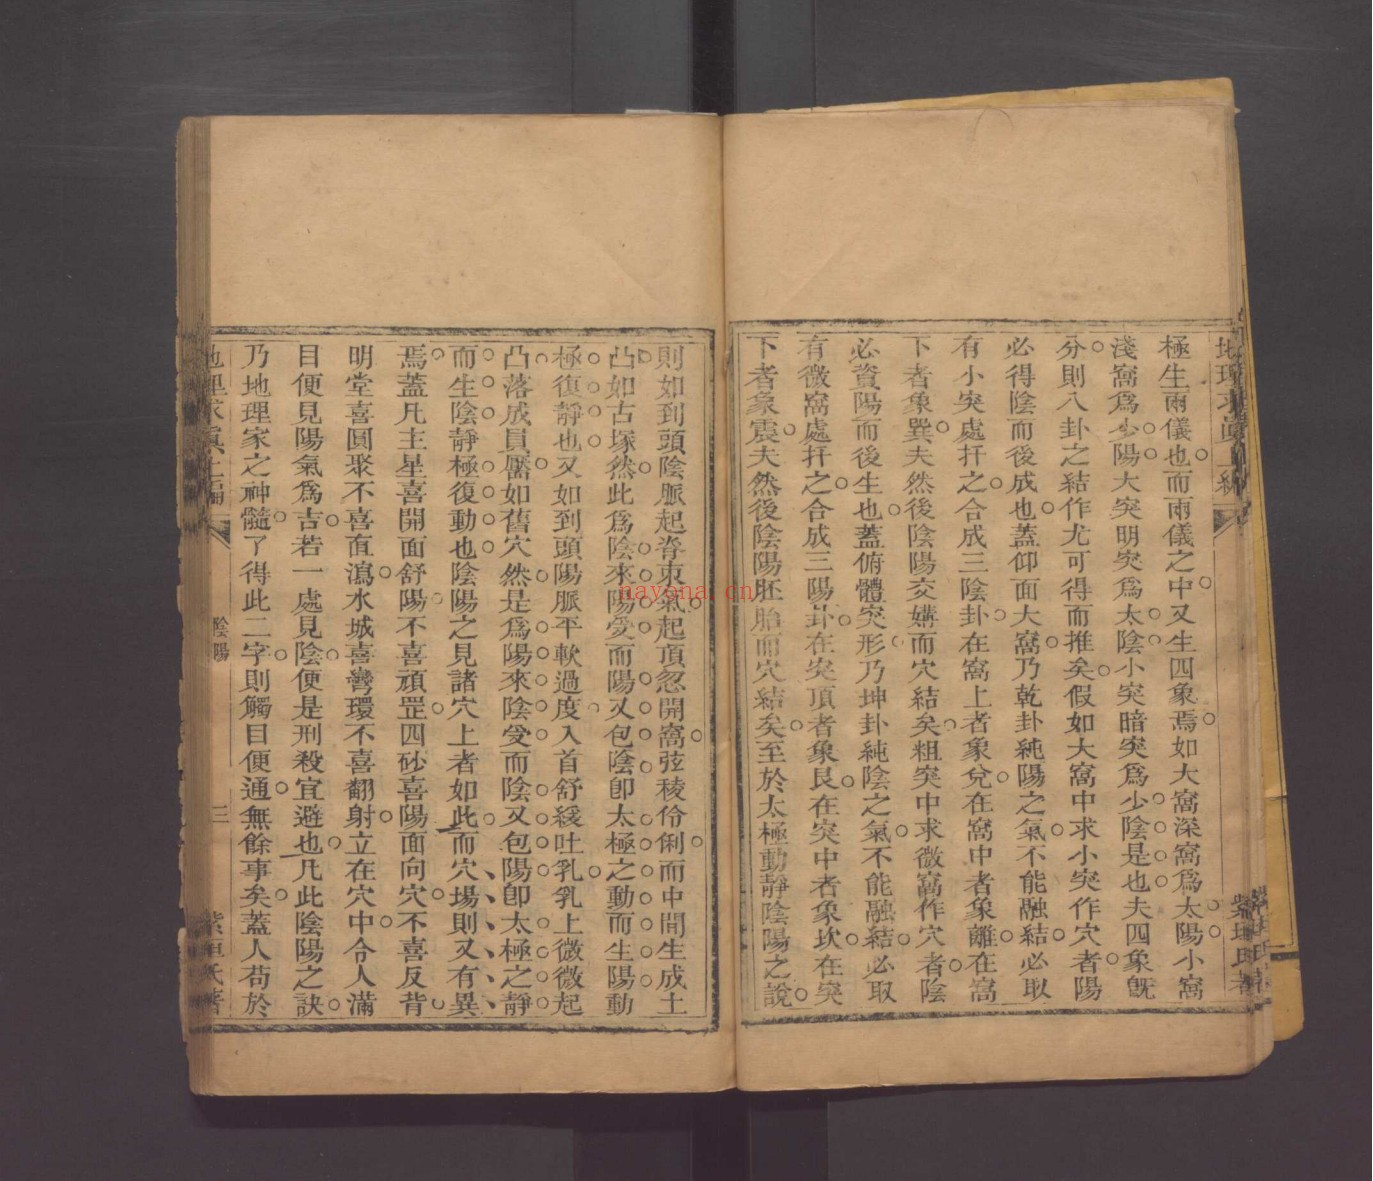 極生兩儀也而兩儀之中又生四象焉如大窩深窩爲太陽小窩
淺窩爲少陽大突明突爲太陰小突暗突爲少陰是也夫四象旣
分則八卦之結作尤可得而推矣假如大窩中求小突作穴者陽
必得陰而後成也蓋仰面大窩乃乾卦純陽之氣不能融結必取
有小突處扦之合成三陰卦在窩上者象兌在窩中者象離在窩
下者象巽夫然後陰陽交媾而穴結矣粗突中求微窩作穴者陰
必資陽而後生也蓋俯體突形乃坤卦純陰之氣不能融結必取
有微窩處扦之合成三陽卦在突頂者象艮在突中者象坎在突
下者象震夫然後陰陽胚胎而穴結矣至於太極動靜陰陽之說
則如到頭陰脈起脊束氣起頂忽開窩弦稜伶俐而中間生成土
凸如古塚然此爲陰來陽受而陽又包陰卽太極之動而生陽動
極復靜也又如到頭陽脈平軟過度入首舒緩吐乳乳上微微起
凸落成員靨如舊穴然是爲陽來陰受而陰又包陽卽太極之靜
而生陰靜極復動也陰陽之見諸穴上者如此而穴場則又有異
焉蓋凡主星喜開面舒陽不喜頑罡四砂喜陽面向穴不喜反背
明堂喜圓聚不喜直瀉水城喜彎環不喜翻射立在穴中令人滿
目便見陽氣爲吉若一處見陰便是刑殺宜避也凡此陰陽之訣
乃地理家之神髓了得此二字則觸目便通無餘事矣蓋人苟於
陰陽
三
紫垣氏著
nayona.cn